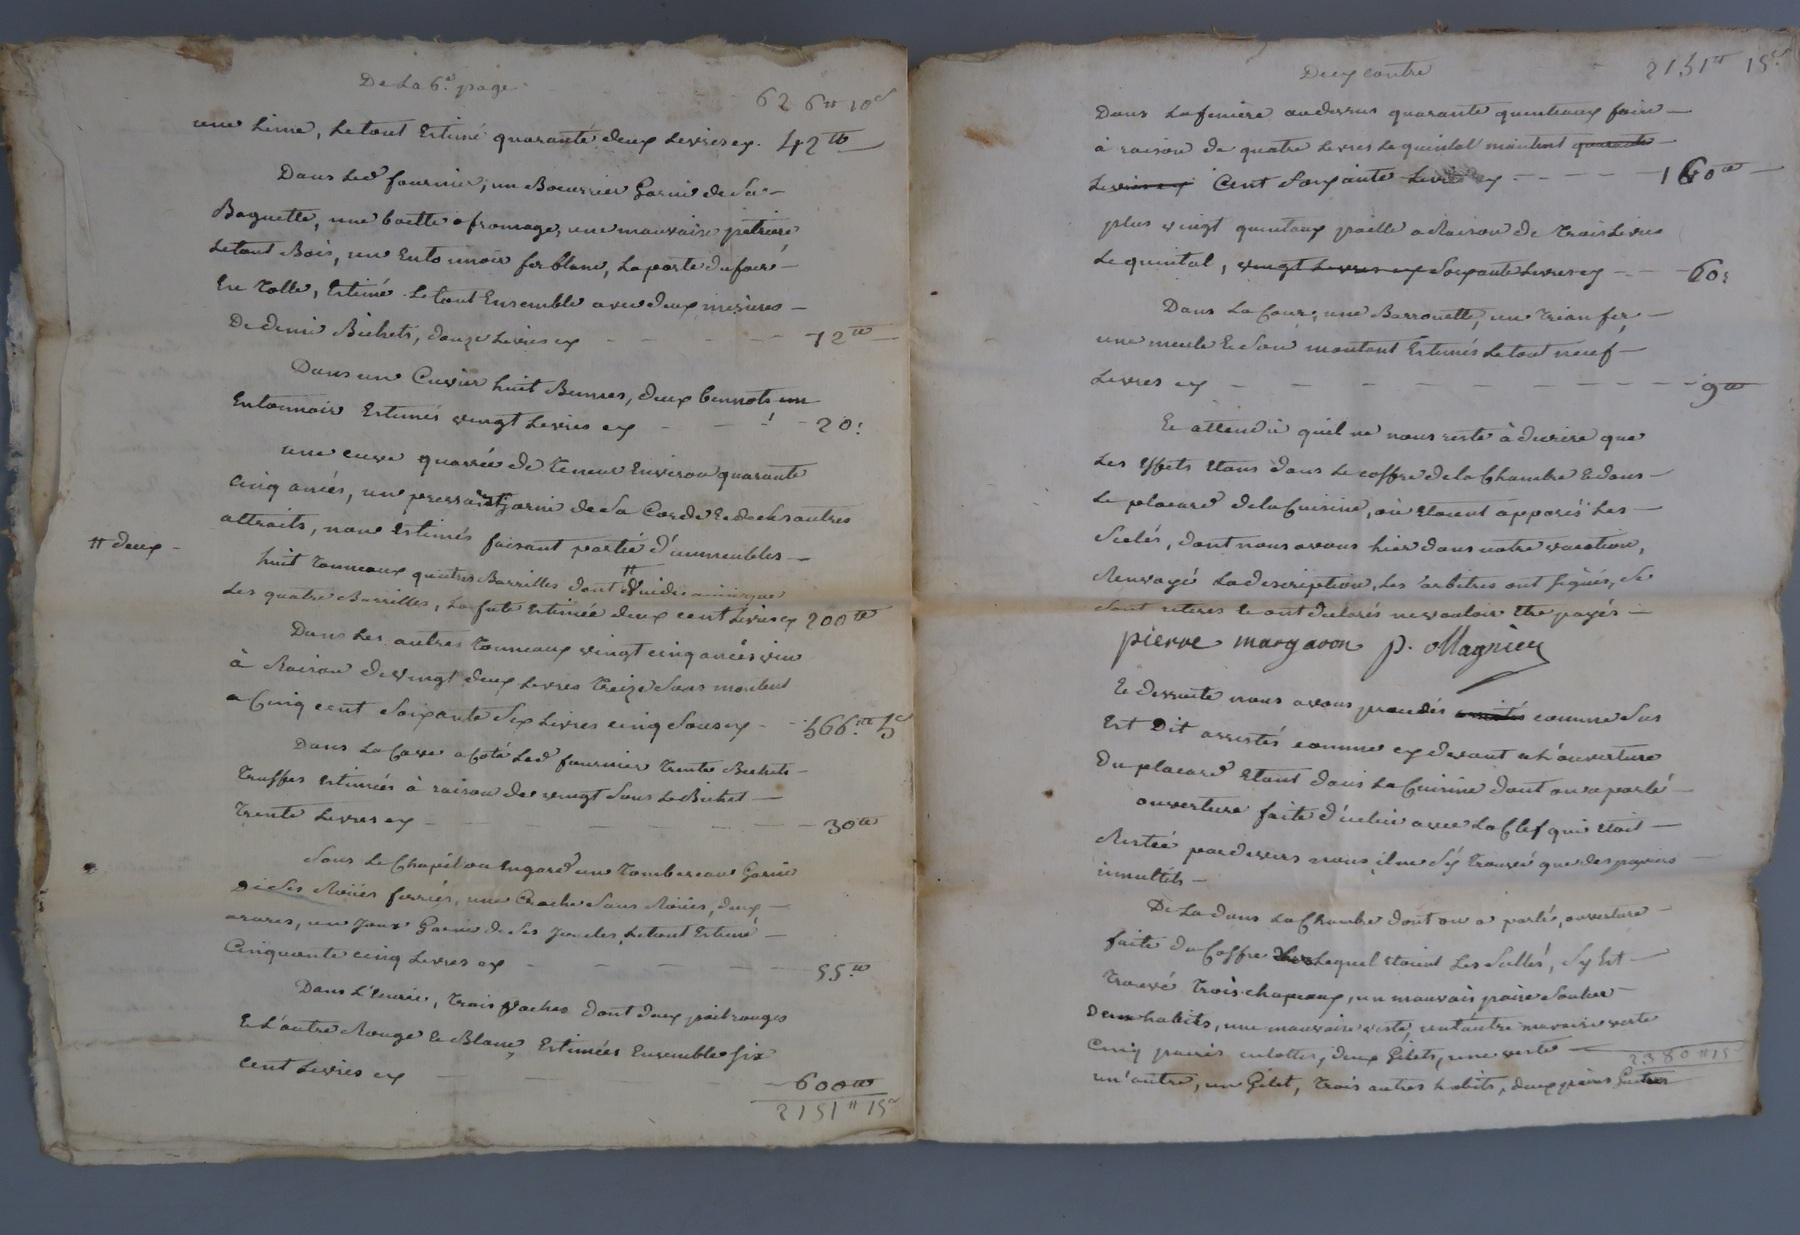 De La 6.e page 626tt 10s
une Lime, Le tout Estimé quarante deux Livres cy. 42tt
Dans Led fournier, un Beurrier Garni de Sa
Baguette, une boette a fromage, une mauvaise petriere
Le tout Bois, un Entonnoir fer blanc, La porte du four
En Tolle, Estimé Le tout Ensemble avec deux mesures
De demi Bichets, douze Livres cy 12tt
Dans un Cuvier huit Bennes, deux bennots un
Entonnoir Estimés vingt Livres cy 20:
une cuve quarrée de Teneur Environ quarante
Cinq anées, un pressoir Garni de Sa Corde Et de ses autres
attraits, non Estimés faisant partie d'immeubles
tt deux
huit Tonneaux quatres Barrilles dont tt Vuides
Les quatre Barrilles, La fute Estimée deux cent Livres cy 200tt
Dans Les autres Tonneaux vingt cinq anées vin
à Raison de vingt deux Livres Treize Sous montent
a Cinq cent Soixante Six Livres cinq Sous cy 566.tt 5s
Dans La Cave a Coté Led fournier Trente Bichets
Truffes Estimées à raison de vingt Sous Le Bichet
Trente Livres cy 30tt
Sous Le Chapit ou Engard un Tombereau Garni
de Ses Roües ferrées, une Sans Roües, deux
araires, un Joux Garni de Ses Le tout Estimé
Cinquante cinq Livres cy 55.tt
Dans L'Ecurie, Trois Vaches dont deux poil rouges
Et L'autre Rouge Et Blanc, Estimées Ensemble Six
cent Livres cy 600tt
2151tt 15s
Deux contre 2151tt 15s
Dans La feniere au dessus quarante quinteaux foin
à raison de quatre Livres Le quintal montent quarante
Livres cy Cent Soixante Livres cy 160tt
plus vingt quintaux paille a Raison de Trois Livres
Le quintal, vingt Livres cy Soixante Livres cy 60:
Dans La Cour, une Barrouette, un Trian fer,
une meule Et Son montant Estimés Le tout neuf
Livres cy 9tt
Et attendu quil ne nous reste à decrire que
Les Effets Etans dans Le coffre de la Chambre Et dans
Le placard de la Cuisine, où Etoient apposés Les
Scelés, dont nous avons hier dans notre vacation,
Renvoyé La description, Les arbitres ont signés, Se
Sont retirés Et ont declarés ne vouloir Etre payés
pierre margaron p. Magnien
Et desuite nous avons procedés comme Sus
Est Dit assistés comme cy devant a L'ouverture
Du placard Etant dans La Cuisine dont on a parlé
ouverture faite d'icelui avec La Clef qui Etoit
Restée pardevers nous il ne S'y Trouvé que des papiers
innutils
De La dans La Chambre dont on a parlé, ouverture
faite du Coffre Sur Lequel Etoient Les Scellés, S'y Est
Trouvé Trois chapeaux, un mauvais paire Soulier
Deux habits, une mauvaise veste, un autre mauvaise veste
Cinq paires culottes, deux Gilets, une veste 2380tt 15s
un'autre, un Gilet, Trois autres habits, deux paires Guetres